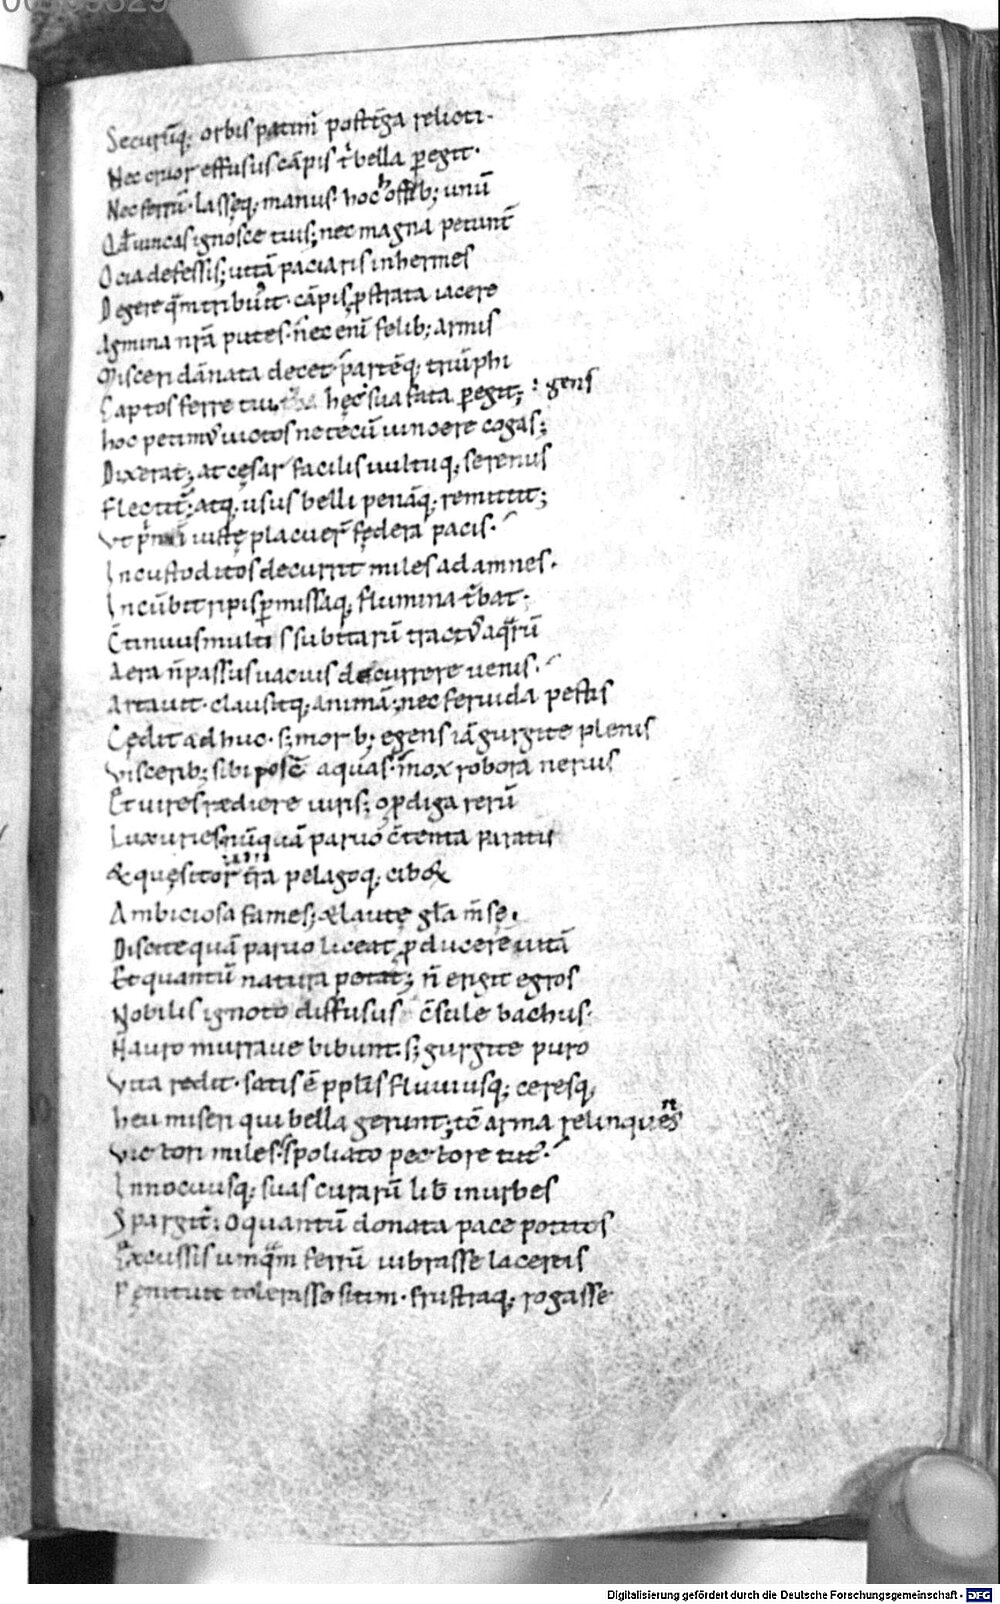 Securūq; orbis patim̄ post t̄ga relicti.
Nec cruor effusus cāpis t̄ bella ꝑegit.
Nec ferrū. lassęq; manus. hoc hostib; unū
Qđ uincas ignosce tuis; nec magna petunt̄
Ocia defessis; uitā paciaris inhermes
Degere quā tribuit. cāpis ꝓstrata iacere
Agmina nr̄a putes. nec enī felib; armis
Misceri dānata decet. partēq; triūphi
Captos ferre tui hęc sua fata ꝑegit; gens
hoc petim᷒ uictos ne tecū uincere cogas;
Dixerat; at cęsar facilis uultuq; serenus
Flectit̄; atq; usus belli penāq; remittit;
Vt iustę placuer̄ fędera pacis.
Incustoditos decurrit miles ad amnes.
Incūbit ripis ꝑmissaq; flumina t̄bat.
C̄tinuus multis subitarū tract᷒ aquarū
Aera n̄ passus uacuis decurrere uenis.
Artauit. clausitq; animā; nec feruida pestis
Cędit adhuc. s; morb; egens iā gurgite plenis
Visceribꝫ sibi poscē aquas. m̄ox robora neruis
Et uires rediere uiris; o ꝓdiga rerū
Luxuries nūquā paruo c̄tenta paratu
& quęsitor̄ t̄ra pelagoq; cib&
Ambiciosa fames; & lautę gl̄a m̄sę.
Discite quā paruo liceat ꝓducere uitā
Et quantū natura petat; n̄ erigit egros
Nobilis ignoto diffusus c̄sule bachus.
N auro murraue bibunt. s; gurgite puro
Vita redit. satis ē ppl̄is fluuiusq; ceresq;
heu miseri qui bella gerunt; tc̄ arma relinquēs
Victori miles. spoliato pectore tut᷒.
Innocuusq; suas curarū lib̄ in urbes
Spargit̄; O quantū donata pace potitos
Excussis unquā ferrū uibrasse lacertis
Penituit tolerasse sitim. frustraq; rogasse